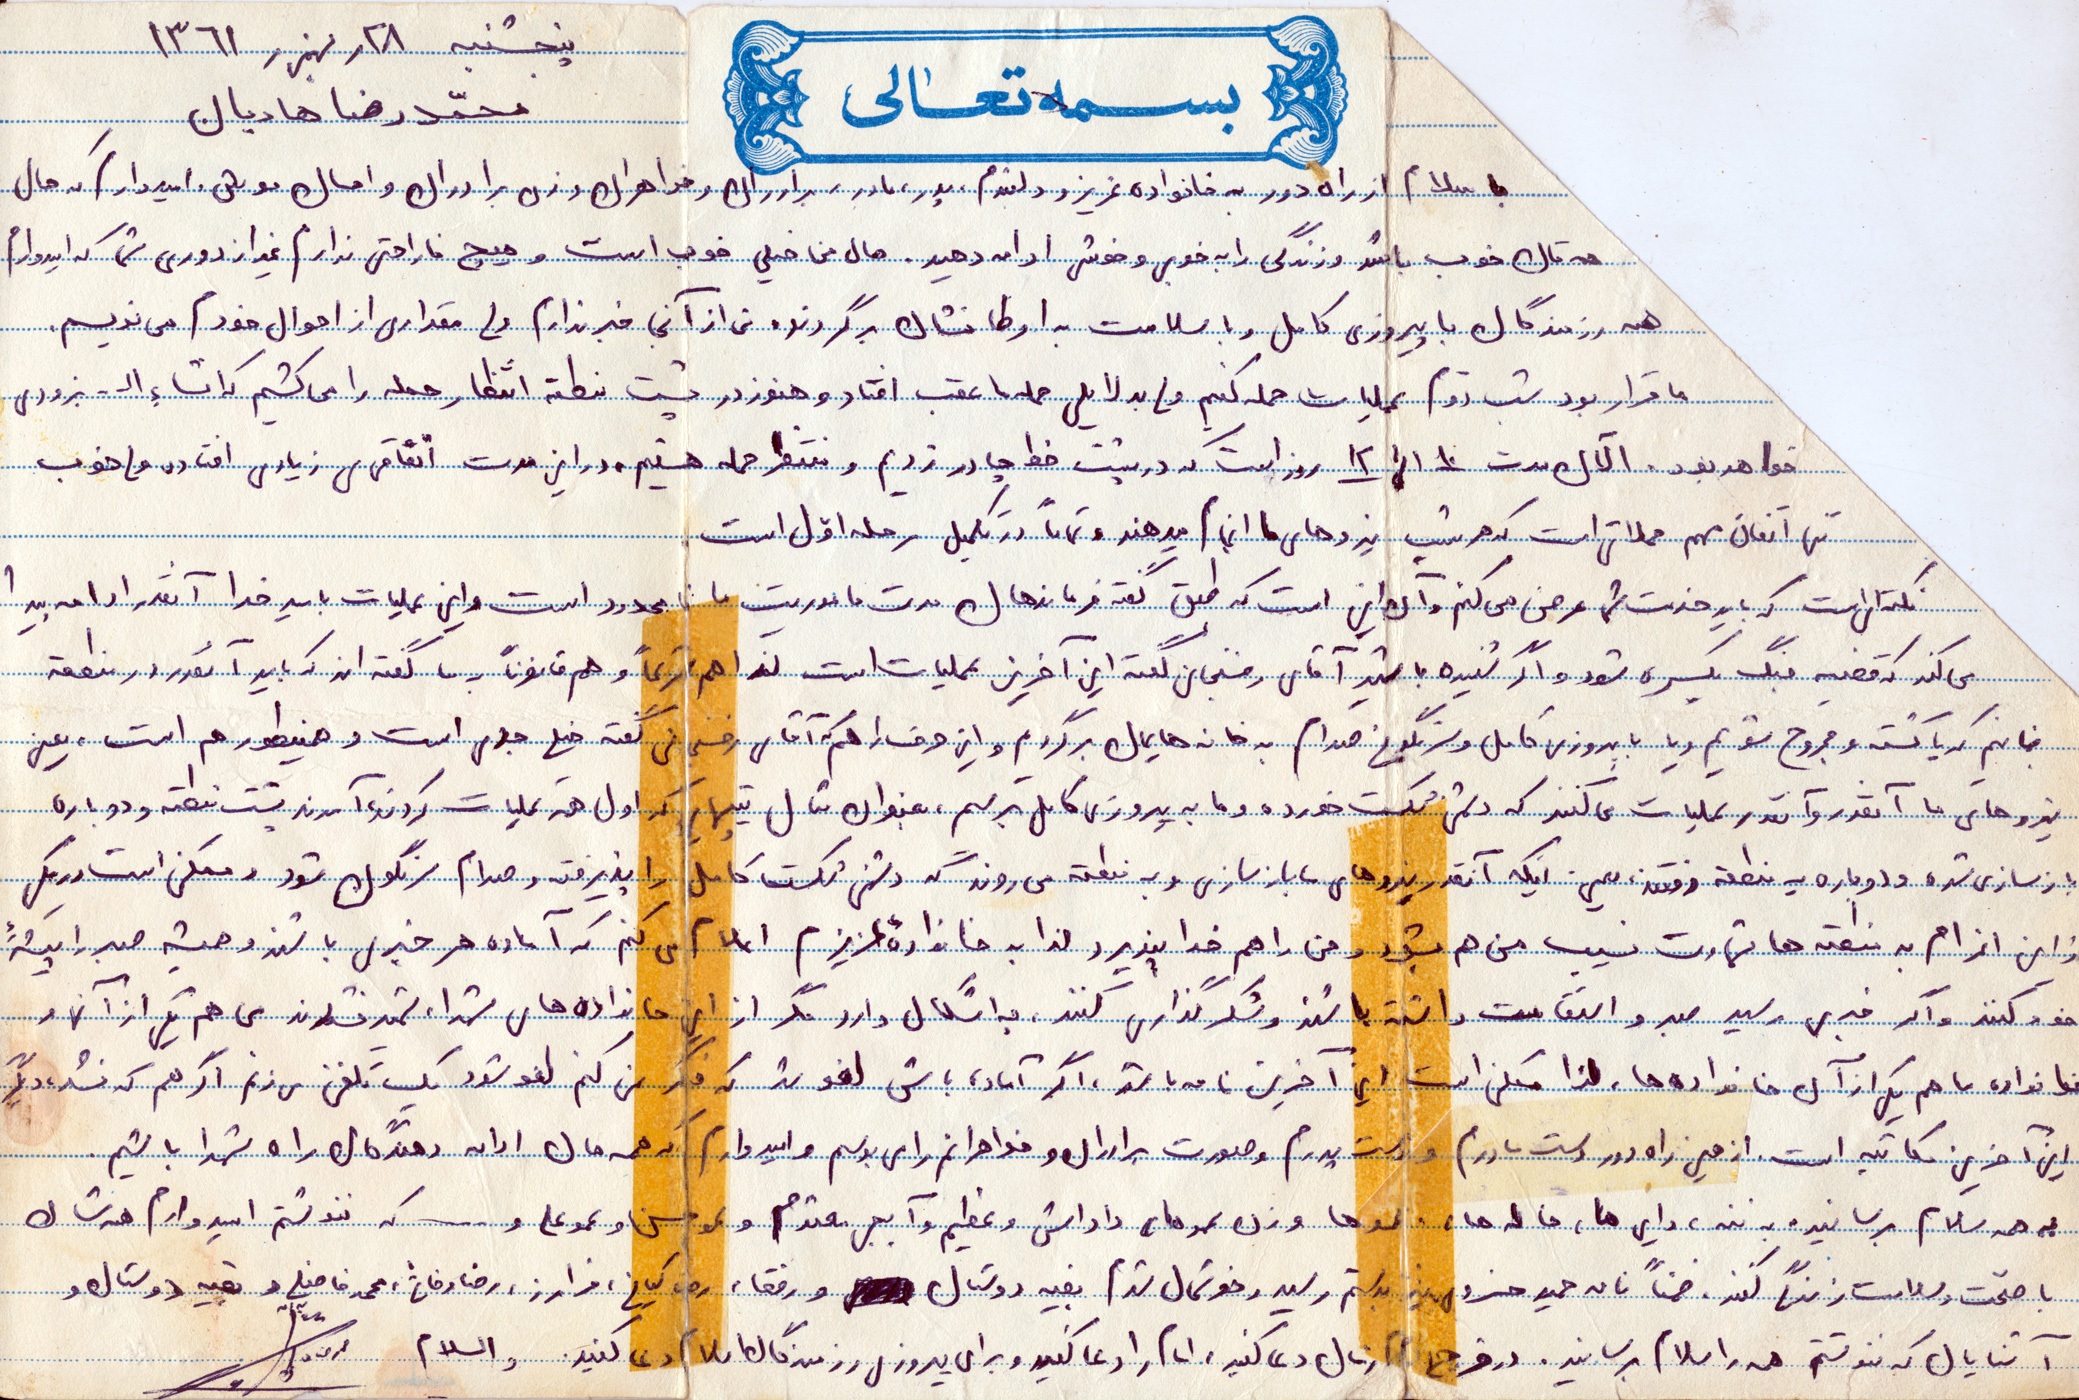 پنجشنبه ۲۸ر بهمن ۱۳۶۱
محمّدرضا هادیان
بسمه تعالی
با سلام از راه دور به خانواده عزیز و دلبندم، پدر، مادر، برادران و خواهران و زن برادران و احسان موشی. امیدوارم که حال
همه‌تان خوب باشد و زندگی را به خوبی و خوشی ادامه دهید. حال من خیلی خوب است و هیچ ناراحتی ندارم غیر از دوری شما که امیدوارم
همه رزمندگان با پیروزی کامل و با سلامت به اوطانشان برگردند. من از آنجا خبر ندارم ولی مقداری از احوال خودم می‌نویسم.
ما قرار بود شب دوّم عملیات حمله کنیم ولی بدلایلی حمله ما عقب افتاد و هنوز در پشت منطقه انتظار حمله را می‌کشیم که انشاءالله بزودی
خواهد بود. الآن مدت ۱۰ الی ۱۲ روز است که در پشت خط چادر زدیم و منتظر حمله هستیم. در این مدت اتّفاقهای زیادی افتاده ولی خوب
تنها اتفاق مهم حملاتی است که هر شب نیروهای ما انجام میدهند و تماماً در تکمیل مرحله اوّل است
نکته‌ای است که باید خدمت شما عرض می‌کنم و آن این است که طبق گفته فرماندهان مدت ماموریت ما نامحدود است و این عملیات به امید خدا آنقدر ادامه پیدا
می‌کند که قضیه جنگ یکسره شود و اگر شنیده باشید آقای رفسنجانی گفته این آخرین عملیات است لذا هم شرعاً و هم قانوناً به ما گفته‌اند که باید آنقدر در منطقه
بمانیم که یا کشته و مجروح شویم و یا با پیروزی کامل و سرنگونی صدام به خانه‌هایمان برگردیم و این حرف را هم که آقای رفسنجانی گفته خیلی جدی است و همینطور هم است، یعنی
نیروهای ما آنقدر و آنقدر عملیات می‌کنند که دشمن شکست خورده و ما به پیروزی کامل برسیم، بعنوان مثال تیپهایی که اول همه عملیات کردند آمدند پشت منطقه و دوباره
بازسازی شده و دوباره به منطقه رفتند، یعنی اینکه آنقدر نیروهای ما بازسازی و به منطقه می‌روند که دشمن شکست کامل را پذیرفته و صدام سرنگون شود و ممکن است در یکی
از این اعزام به منطقه‌ها شهادت نسیب من هم بشود و من را هم خدا بپذیرد لذا به خانواده عزیزم اعلام می‌کنم که آماده هر خبری باشند و همیشه صبر را پیشه
خود کنند و اگر خبری رسید صبر و استقامت داشته باشند و شکرگذاری کنند، چه اشکال دارد مگر از این خانواده‌های شهدا، شهید نشدند من هم یکی از آنها و
خانواده ما هم یکی از آن خانواده‌ها، لذا ممکن است این آخرین نامه باشد، اگر آماده باش لغو شد که فکر نمی‌کنم لغو شود یک تلفن می‌زنم اگر هم که نشد، دیگر
این آخرین مکاتبه است. از همین راه دور دست مادرم و دست پدرم و صورت برادران و خواهرانم را می‌بوسم و امیدوارم که همه‌مان ادامه دهندگان راه شهدا باشیم.
به همه سلام برسانید، به ننه، دایی ها، خاله ها، عموها و زن عموها، داداش و عظیم و آبجی معتدم و عموحسن و عموعلی و ـــ که ننوشتم امیدوارم همه‌شان
با صحّت و سلامت زندگی کنند. ضمناً نامه حمید خسروی نیز بدستم رسید و خوشحال شدم بقیه دوستان و رفقا، رضا کیانی، فرامرز، رضا رفاقی، محمد فاضلی و بقیه دوستان و
آشنایان که ننوشتم همه را سلام برسانید. در فرج امام زمان دعا کنید، امام را دعا کنید و برای پیروزی رزمندگان اسلام دعا کنید. والسلام